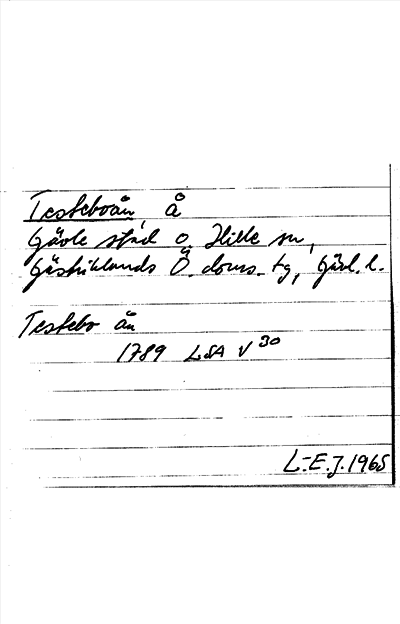 Testeboån, å
Gävle stad o. Hille sn,
Gästriklands Ö. doms. tg, Gävl. l.
Testebo ån
1789 LSA V 30
L-E.J. 1965